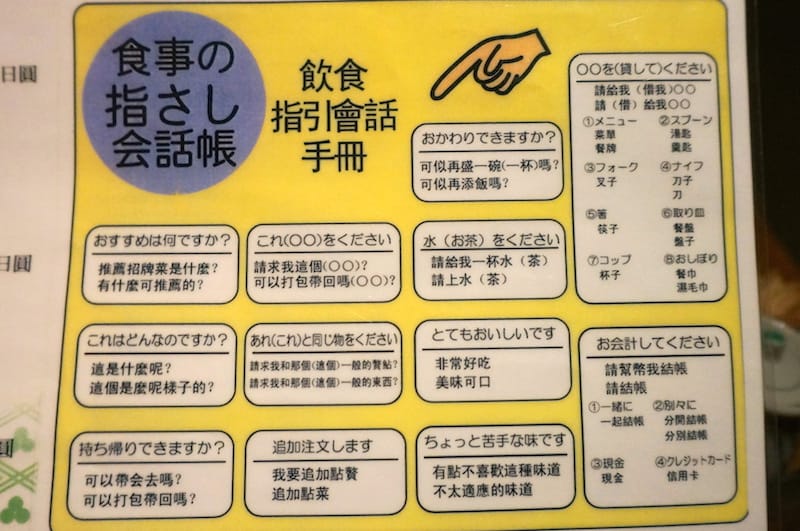 日圓
日圓
食事の
指さし
会話帳
飲食
指引會話
手冊
おかわりできますか?
可似再盛一碗(一杯)嗎?
可似再添飯嗎?
〇〇を(貸して)ください
請給我(借我)〇〇
請(借)給我〇〇
①メニュー
菜單
餐牌
②スプーン
湯匙
羹匙
③フォーク
叉子
④ナイフ
刀子
刀
⑤箸
筷子
⑥取り皿
餐盤
盤子
⑦コップ
杯子
⑧おしぼり
餐巾
濕毛巾
おすすめは何ですか?
推薦招牌菜是什麼?
有什麼可推薦的?
これ(〇〇)をください
請求我這個(〇〇)?
可以打包帶回嗎(〇〇)?
水(お茶)をください
請給我一杯水(茶)
請上水(茶)
これはどんなのですか?
這是什麼呢?
這個是麼呢樣子的?
あれ(これ)と同じ物をください
請求我和那個(這個)一般的贅鮎?
請求我和那個(這個)一般的東西?
とてもおいしいです
非常好吃
美味可口
お会計してください
請幫幣我結帳
請結帳
①一緒に
一起結帳
②別々に
分開結帳
分別結帳
③現金
現金
④クレジットカード
信用卡
持ち帰りできますか?
可以帶会去嗎?
可以打包帶回嗎?
追加注文します
我要追加點贅
追加點菜
ちょっと苦手な味です
有點不喜歡這種味道
不太適應的味道
圓